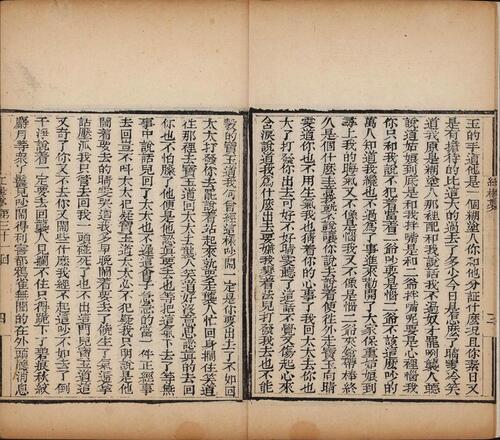 紅樓夢
玉的手道他是一個糊塗人你和他分証什麼况且你素日又
是有擔待的比這大的過去了多少今日是怎麼了晴雯冷笑
道我原是糊塗人那裡配和我說話我不過奴才罷咧襲人聽
說道姑娘到底是和我拌嘴是和二爺拌嘴呢要是心裡惱我
你只和我說不犯着當着二爺吵要是惱二爺不該這麼吵的
萬人知道我纔也不過爲了事進來勸開了大家保重姑娘到
尋上我的晦氣又不像是惱我又不像是惱二爺夾鎗帶棒終
久是個什麼主意我就不說讓你說去說着便往外走寶玉向晴
雯道你也不用生氣我也猜着你的心事了我回太太去你也
大了打發你出去可好不好晴雯聽了這話不覺又傷起心來
含淚說道我爲什麼出去要嫌我變着法兒打發我去也不能
彀的寶玉道我何曾經過這樣吵鬧一定是你要出去了不如回
太太打發你去罷說着站起來就要走襲人忙回身攔住笑道
往那裡去寶玉道回太太去襲人笑道好沒意思認真的去回
你也不怕臊了他便是他認真要去也等把這氣下去了等無
事中說話兒回了太太也不遲這會子急急的當一件正經事
去回豈不叫太太犯疑寶玉道太太必不犯疑我只明說是他
鬧着要去的晴雯哭道我多早晚鬧着要去了饒生了氣還拿
話壓派我只管去回我一頭碰死了也不出這門兒寶玉道這
又奇了你又不去你又鬧些什麼我經不起這麼吵不如去了倒
干净說着一定要去回襲人見攔不住只得跪下了碧痕秋紋
麝月等衆丫鬟見吵鬧得利害都鴉雀無聞的在外頭聽消息
第三十一回
四